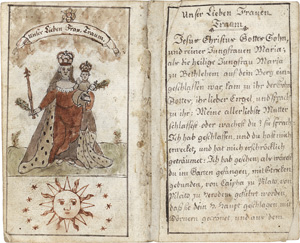 Unser Lieben Frau Traum
Unser Lieben Frauen
Traum
Jesus Christus Gottes Sohn,
und reiner Jungfrauen Maria,
als die heilige Jungfrau Maria
zu Bethlehem auf dem Berg ein-
geschlaffen war, kam zu ihr der
ihr lieber Engel, und sprach
zu ihr: Meine allerliebste Mutter
schlaffest oder wachest du? sie sprach:
Ich hab geschlaffen, und du hast mich
erwecket, und hat mich erschröcklich
geträumet: Ich hab gesehen, als wärest
du im Garten gefangen, mit Stricken
gebunden, von Caipha zu Pilato, von
Pilato zu Herodem geführet worden,
Haupt geschlagen mit
Dörnern gecrönet, und aus dem